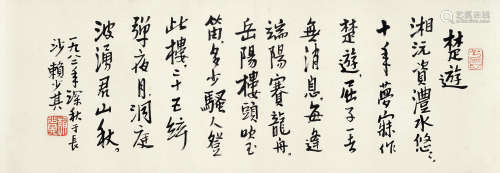 楚遊
湘沅資澧水悠悠
十年夢寐作
楚遊屈子一去
無消息每逢
端陽賽龍舟
岳陽樓頭吹玉
笛多少騷人登
此樓二十五絃
彈夜月洞庭
波湧君山秋
一九八二年深秋于長
沙賴少其